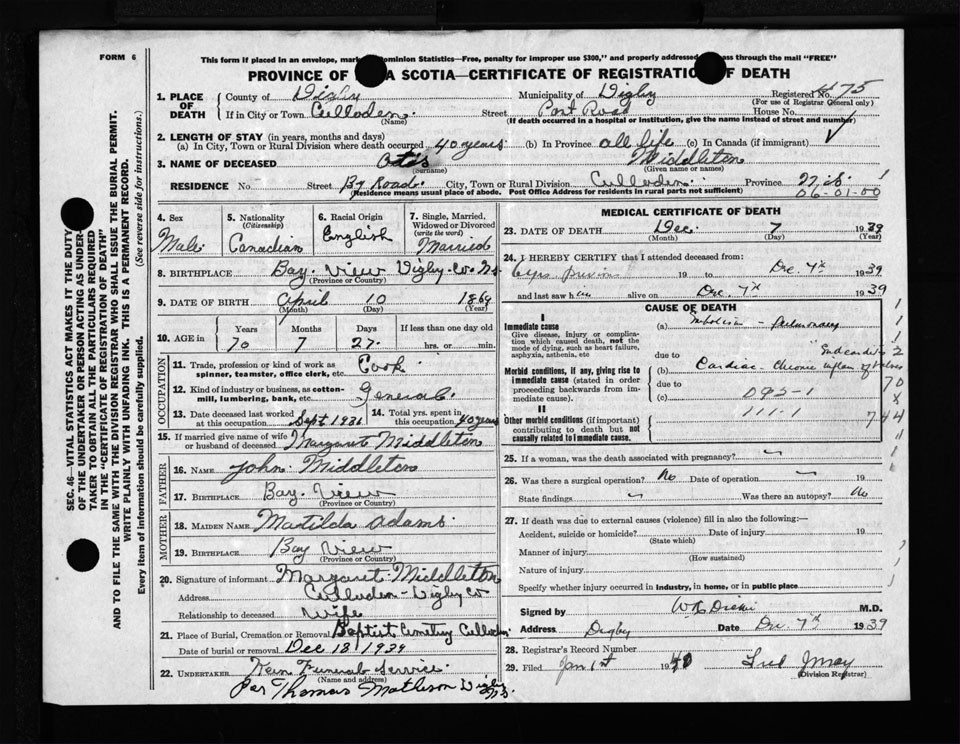 FORM 6
This form if placed in an envelope, mar ominion Statistics—Free, penalty for improper use $300," and properly addressed ass through the mail "FREE"
PROVINCE OF A SCOTIA—CERTIFICATE OF REGISTRATION F DEATH
1. PLACE OF DEATH County of Digby Municipality of Digby Registered No. 475
(For use of Registrar General only)
If in City or Town Culloden Street Post Road House No.
(Name) (If death occurred in a hospital or institution, give the name instead of street and number)
2. LENGTH OF STAY (in years, months and days)
(a) In City, Town or Rural Division where death occurred 40 years (b) In Province all life (c) In Canada (if immigrant)
3. NAME OF DECEASED Otis Middleton
(Surname) (Given name or names)
RESIDENCE No. Street By Road City, Town or Rural Division Culloden Province N.S.
(Residence means usual place of abode. Post Office Address for residents in rural parts not sufficient) 06-01-00
SEC. 46—VITAL STATISTICS ACT MAKES IT THE DUTY
OF THE UNDERTAKER OR PERSON ACTING AS UNDER-
TAKER TO OBTAIN ALL THE PARTICULARS REQUIRED
IN THE "CERTIFICATE OF REGISTRATION OF DEATH"
AND TO FILE THE SAME WITH THE DIVISION REGISTRAR WHO SHALL ISSUE THE BURIAL PERMIT.
WRITE PLAINLY WITH UNFADING INK. THIS IS A PERMANENT RECORD.
Every item of information should be carefully supplied. (See reverse side for instructions.)
4. Sex 5. Nationality 6. Racial Origin 7. Single, Married,
(Citizenship) Widowed or Divorced
(write the word)
Male Canadian English Married
8. BIRTHPLACE Bay View Digby Co. N.S.
(Province or Country)
9. DATE OF BIRTH April 10 1869
(Month) (Day) (Year)
10. AGE in Years Months Days If less than one day old
70 7 27 hrs. or min.
OCCUPATION
11. Trade, profession or kind of work as
spinner, teamster, office clerk, etc. Cook
12. Kind of industry or business, as cotton-
mill, lumbering, bank, etc. General
13. Date deceased last worked at this occupation Sept 1936 14. Total yrs. spent in this occupation 40 years
15. If married give name of wife
or husband of deceased Margaret Middleton
FATHER
16. NAME John Middleton
17. BIRTHPLACE Bay View
(Province or Country)
MOTHER
18. MAIDEN NAME Matilda Adams
19. BIRTHPLACE Bay View
(Province or Country)
20. Signature of informant Margaret Middleton
Address Culloden - Digby Co
Relationship to deceased Wife
21. Place of Burial, Cremation or Removal Baptist Cemetery Culloden
Date of burial or removal Dec 18 1939
22. UNDERTAKER Funeral Service
(Name and address)
Per Thomas Digby N.S.
MEDICAL CERTIFICATE OF DEATH
23. DATE OF DEATH Dec. 7 1939
(Month) (Day) (Year)
24. I HEREBY CERTIFY that I attended deceased from:
6 yrs 19 to Dec. 7th 1939
and last saw him alive on Dec. 7th 1939
CAUSE OF DEATH
I
Immediate cause (a) Embolism - Pulmonary
Give disease, injury or complica-
tion which caused death, not the
mode of dying, such as heart failure,
asphyxia, asthenia, etc due to Endocarditis 2
Morbid conditions, if any, giving rise to
immediate cause (stated in order
proceeding backwards from im-
mediate cause). (b) Cardiac - Chronic inflam of valves
due to
(c) 095-1
70
8
II
111-1
744
Other morbid conditions (if important)
contributing to death but not
causally related to immediate cause.
25. If a woman, was the death associated with pregnancy?
26. Was there a surgical operation? No Date of operation 19
State findings Was there an autopsy? No
27. If death was due to external causes (violence) fill in also the following:—
Accident, suicide or homicide? Date of injury 19
(State which)
Manner of injury
(How sustained)
Nature of injury
Specify whether injury occurred in industry, in home, or in public place
Signed by M.D.
Address Digby Date Dec. 7th 1939
28. Registrar's Record Number
29. Filed Jan 1st 1940
(Division Registrar)